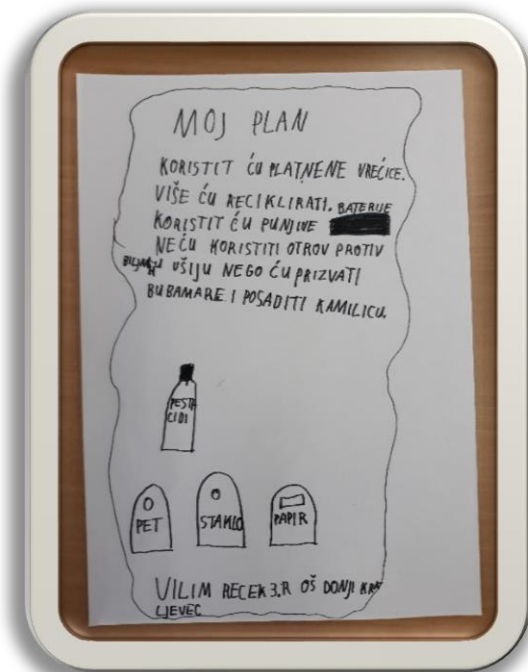 MOJ PLAN
KORISTIT ĆU PLATNENE VREĆICE.
VIŠE ĆU RECIKLIRATI. BATERIJE
KORISTIT ĆU PUNJIVE
NEĆU KORISTITI OTROV PROTIV
UŠIJU NEGO ĆU PRIZVATI
BUBAMARE I POSADITI KAMILICU.
PESTI
CIDI
PET
STAKLO
PAPIR
VILIM RECEK 3.R OŠ DONJI KRA
LJEVEC